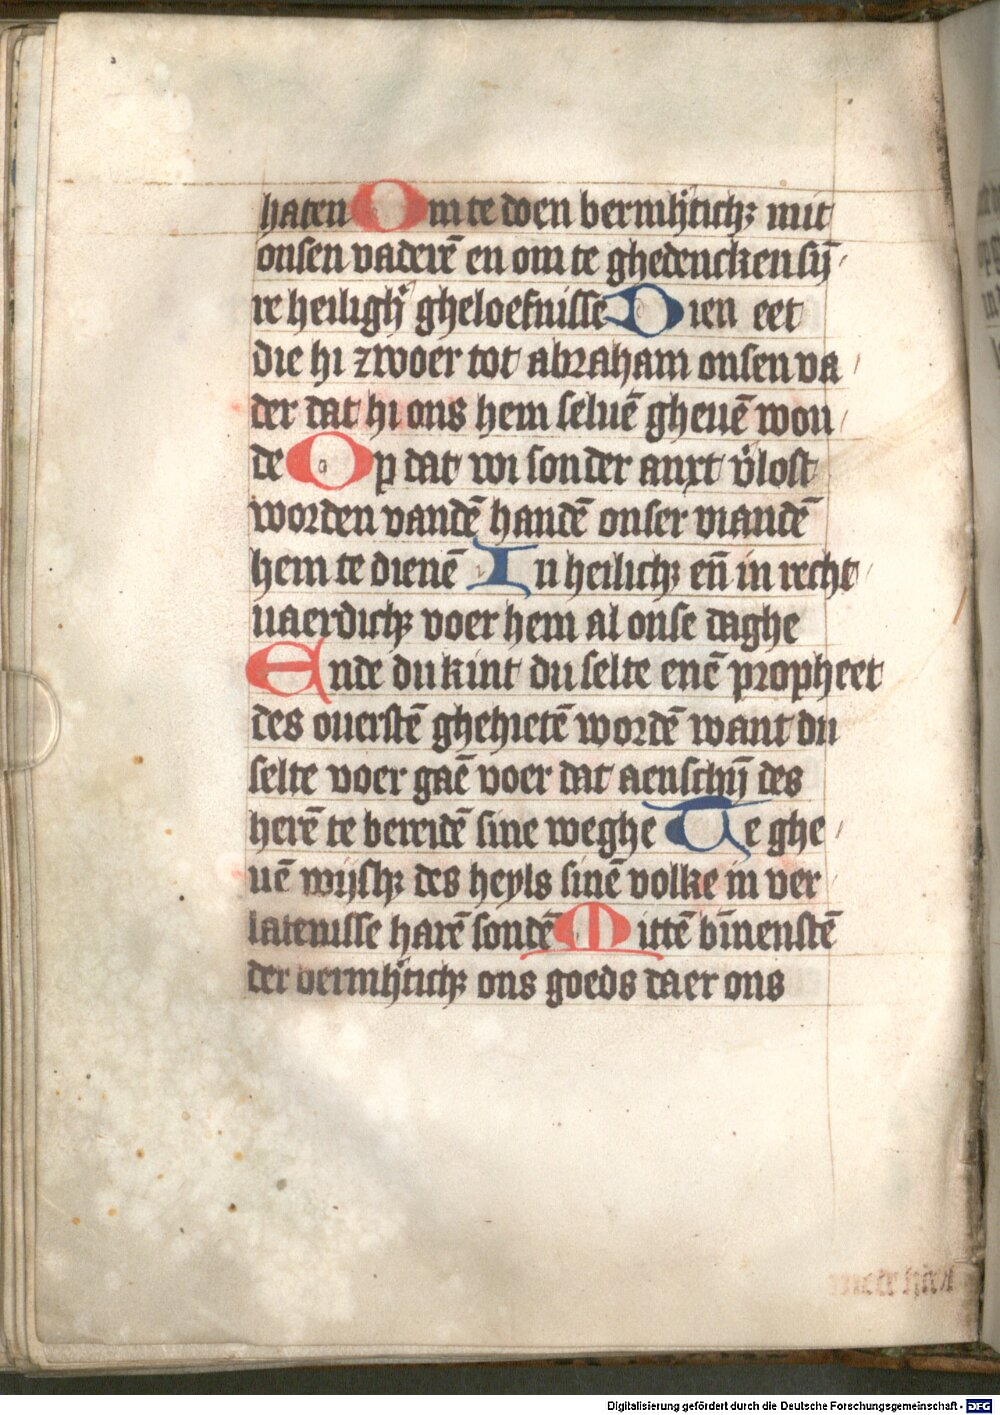 haten Om te doen bermh̾ticħ mit
onsen vaderē en om te ghedencken sij̄
re heiligh̾ gheloefnisse Dien eet
die hi zwoer tot abraham onsen va
der dat hi ons hem seluē gheuē wou
de Op dat wi sonder anxt v̾lost
worden vandē handē onser viandē
hem te dienē In heilich₃ en̄ in recht
uaerdich₃ voer hem al onse daghe
Ende du kint du selte enē propheet
des ouerstē ghehietē wordē want du
selte voer gaē voer dat aenschijn des
herē te bereidē sine weghe Te ghe
uē wijsh₃ des heyls sinē volke in ver
latenisse harē sondē Mittē bīnenstē
der bermh̾tich₃ ons goeds daer ons
Digitalisierung gefördert durch die Deutsche Forschungsgemeinschaft - DFG